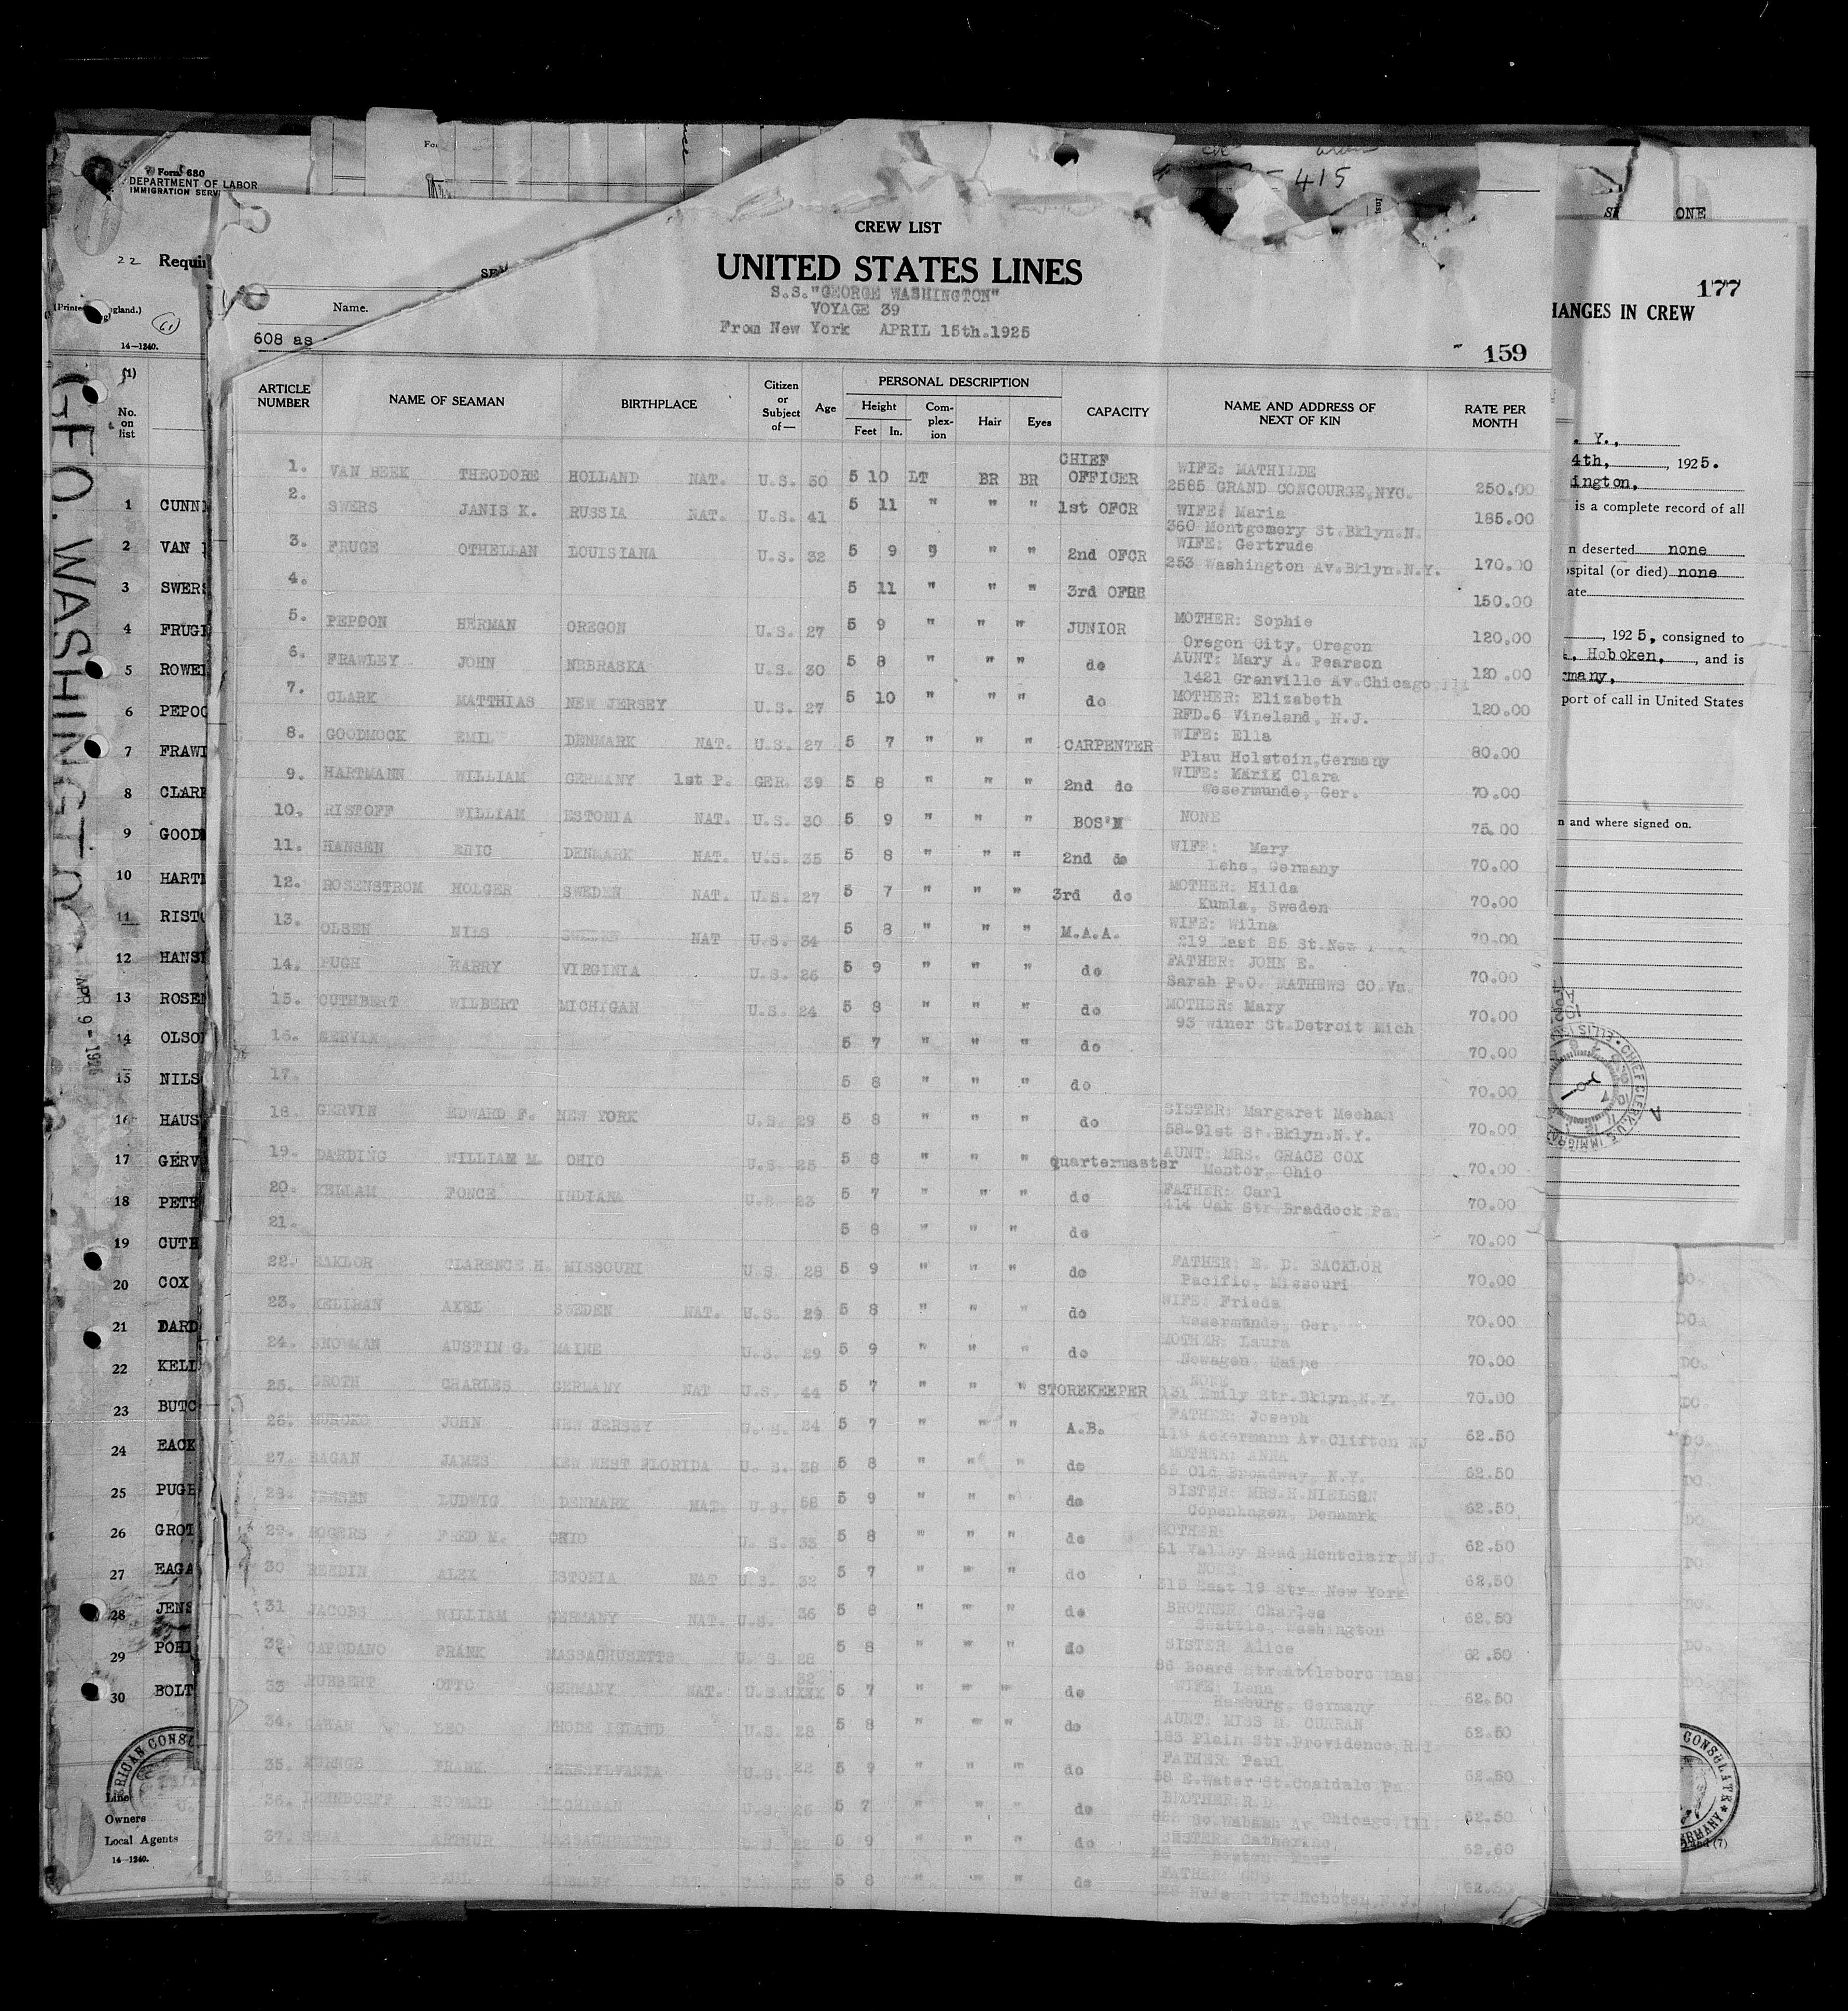 Form 680
DEPARTMENT OF LABOR
IMMIGRATION SERV
22 Requir
14—1240.
608 as
Name.
415
CREW LIST
UNITED STATES LINES
S.S."GEORGE WASHINGTON"
VOYAGE 39
From New York APRIL 15th.1925
159
ONE
177
HANGES IN CREW
ARTICLE NUMBER NAME OF SEAMAN BIRTHPLACE Citizen or Subject of— Age PERSONAL DESCRIPTION Height Feet In. Complexion Hair Eyes CAPACITY NAME AND ADDRESS OF NEXT OF KIN RATE PER MONTH
1. VAN BEEK THEODORE HOLLAND NAT. U.S. 50 5 10 LT BR BR CHIEF OFFICER WIFE: MATHILDE
2565 GRAND CONCOURSE,NYC. 250.00
2. SWERS JANIS K. RUSSIA NAT. U.S. 41 5 11 " " " 1st OFCR WIFE: Maria
360 Montgomery St.Bklyn.N. 185.00
3. FRUGE OTHELLAN LOUISIANA U.S. 32 5 9 " " " 2nd OFCR WIFE: Gertrude
253 Washington Av.Bklyn.N.Y. 170.00
4. 5 11 " " " 3rd OFRR 150.00
5. PEPOON HERMAN OREGON U.S. 27 5 9 " " " JUNIOR MOTHER: Sophie
Oregon City, Oregon 120.00
6. FRAWLEY JOHN NEBRASKA U.S. 30 5 8 " " " do AUNT: Mary A. Pearson
1421 Granville Av.Chicago Ill 120.00
7. CLARK MATTHIAS NEW JERSEY U.S. 27 5 10 " " " do MOTHER: Elizabeth
RFD.6 Vineland, N.J. 120.00
8. GOODMOCK EMIL DENMARK NAT. U.S. 27 5 7 " " " CARPENTER WIFE: Ella
Plau Holstein,Germany 80.00
9. HARTMANN WILLIAM GERMANY 1st P. GER. 39 5 8 " " " 2nd do WIFE: Marie Clara
Wesermunde, Ger. 70.00
10. RISTOFF WILLIAM ESTONIA NAT. U.S. 30 5 9 " " " BOS'N NONE 75.00
11. HANSEN ERIC DENMARK NAT. U.S. 35 5 8 " " " 2nd do WIFE: Mary
Lehe, Germany 70.00
12. ROSENSTROM HOLGER SWEDEN NAT. U.S. 27 5 7 " " " 3rd do MOTHER: Hilda
Kumla, Sweden 70.00
13. OLSEN NILS SWEDEN NAT U.S. 34 5 8 " " " M.A.A. WIFE: Wilna
219 East 85 St.New 70.00
14. PUGH HARRY VIRGINIA U.S. 26 5 9 " " " do FATHER: JOHN E.
Sarah P.O. MATHEWS CO.Va. 70.00
15. CUTHBERT WILBERT MICHIGAN U.S. 24 5 8 " " " do MOTHER: Mary
93 Winer St.Detroit Mich 70.00
16. GERVIN 5 7 " " " do 70.00
17. 5 8 " " " do 70.00
18. GERVIN EDWARD F. NEW YORK U.S. 29 5 8 " " " do SISTER: Margaret Meehan
58-91st St.Bklyn.N.Y. 70.00
19. DARDING WILLIAM M. OHIO U.S. 25 5 8 " " " quartermaster AUNT: MRS. GRACE COX
Mentor, Ohio 70.00
20. KELLAM PONCE INDIANA U.S. 23 5 7 " " " do FATHER: Carl
414 Oak Str.Braddock Pa. 70.00
21. 5 8 " " " do 70.00
22. EAKLOR CLARENCE H. MISSOURI U.S. 28 5 9 " " " do FATHER: E. D. EACKLOR
Pacific, Missouri 70.00
23. KELIRAN AXEL SWEDEN NAT. U.S. 29 5 8 " " " do WIFE: Frieda
Wesermunde, Ger. 70.00
24. SNOWMAN AUSTIN G. MAINE U.S. 29 5 9 " " " do MOTHER: Laura
Newagen, Maine 70.00
25. GROTH CHARLES GERMANY NAT U.S. 44 5 7 " " " STOREKEEPER NONE
131 Emily Str.Bklyn,N.Y. 70.00
26. MURCKO JOHN NEW JERSEY U. S. 24 5 7 " " " A.B. FATHER: Joseph
119 Ackermann Av.Clifton NJ 62.50
27. EAGAN JAMES KEW WEST FLORIDA U. S. 38 5 8 " " " do MOTHER: ANNA
65 Old Broadway, N.Y. 62.50
28. JENSEN LUDWIG DENMARK NAT. U.S. 58 5 9 " " " do SISTER: MRS.H.NIELSEN
Copenhagen, Denamrk 62.50
29. ROGERS FRED M. OHIO U. S. 33 5 8 " " " do MOTHER:
61 Valley Road Montclair,N.J. 62.50
30 REEDIN ALEX ESTONIA NAT U.S. 32 5 7 " " " do NONE
315 East 19 Str. New York 62.50
31 JACOBS WILLIAM GERMANY NAT. U.S. 36 5 8 " " " do BROTHER: Charles
Seattle, Washington 62.50
32 CAPODANO FRANK MASSACHUSETTS U. S. 28 5 8 " " " do SISTER Alice
86 Board Str.Attleboro Mas. 62.50
33 RUBBERT OTTO GERMANY NAT. U.S. 32 5 7 " " " do WIFE: Lena
Hamburg, Germany 62.50
34. LEO RHODE ISLAND U.S. 28 5 8 " " " do AUNT: MISS M. CURRAN
183 Plain Str.Providence,R.I. 62.50
35. FRANK PENNSYLVANIA U.S. 22 5 9 " " " do FATHER: Paul
58 E.Water St.Coaldale Pa 62.50
36. DEHNDORFF HOWARD MICHIGAN U.S. 25 5 7 " " " do BROTHER:R.D
So.Wabash Av. Chicago,Ill. 62.50
37. ARTHUR MASSACHUSETTS U.S. 22 5 9 " " " do SISTER: Catherine,
Boston, Mass 62.60
38. GERMANY 5 8 " " " do FATHER: GUS
Hudson Str.Hoboken,N.J. 62.50
(1)
No. on list
1 CUNN
2 VAN
3 SWERS
4 FRUG
5 ROWE
6 PEPO
7 FRAW
8 CLARK
9 GOOD
10 HART
11 RIST
12 HANS
13 ROSE
14 OLSO
15 NILS
16 HAUS
17 GERV
18 PETE
19 CUTH
20 COX
21 DARD
22 KELL
23 BUTC
24 EACK
25 PUGH
26 GROT
27 EAGA
28 JENS
29 POHL
30 BOLT
Line
Owners
Local Agents
14—1240.
GEO. WASHINGTON
APR 9 - 192
. Y.,
4th, , 1925.
ington,
is a complete record of all
n deserted none
ospital (or died) none
ate
, 1925, consigned to
, Hoboken, , and is
rmany,
port of call in United States
n and where signed on.